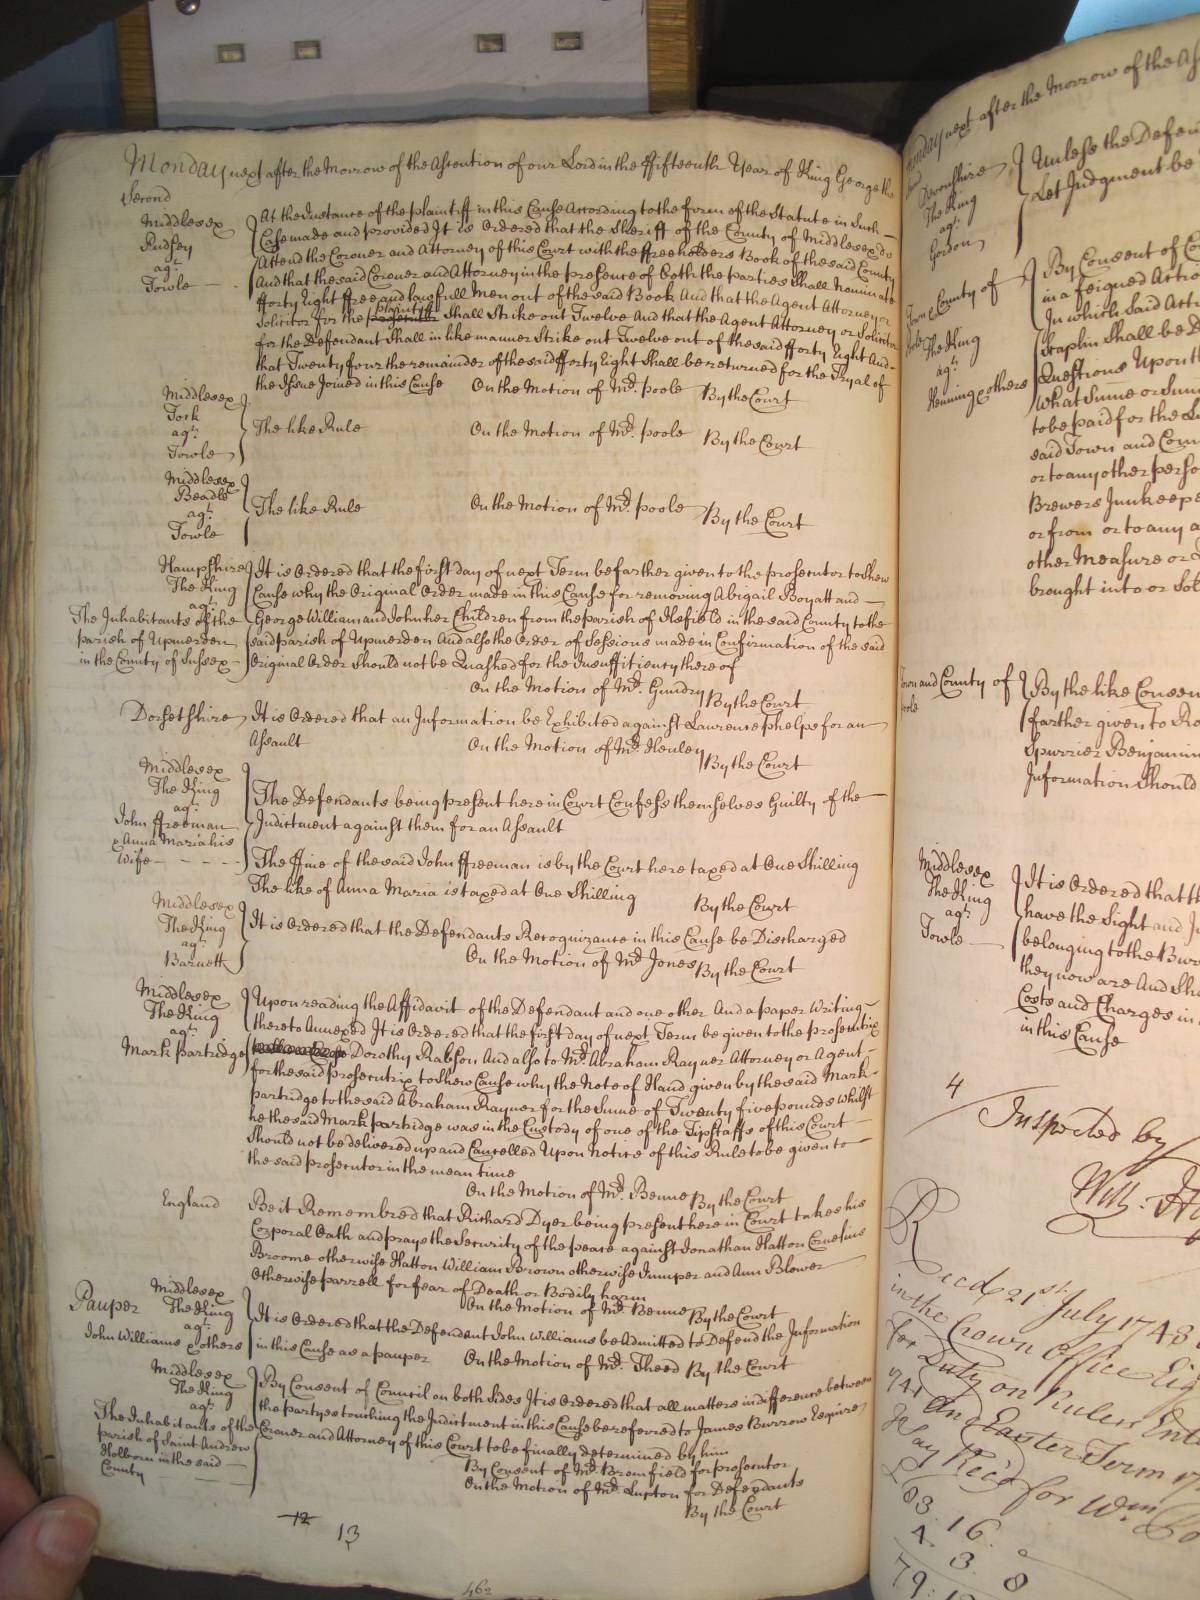 Monday next after the Morrow of the Ascention of our Lord in the ffifteenth Year of King George the
Second
Middlesex
Pudsey
agt.
Towle
At the Instance of the plaintiff in this Cause According to the form of the Statute in Such
Case made and provided It is Ordered that the Sheriff of the County of Middlesex do
Attend the Coroner and Attorney of this Court with the ffreeholders Book of the said County
And that the said Coroner and Attorney in the presence of both the parties Shall Nominate
fforty Eight ffree and lawfull Men out of the said Book And that the Agent Attorney or
Solicitor for the plaintiff Shall Strike out Twelve And that the Agent Attorney or Solicitor
for the Defendant Shall in like manner Strike out Twelve out of the said fforty Eight And
that Twenty four the remainder of the said fforty Eight Shall be returned for the Tryal of
the Issue Joined in this Cause On the Motion of Mr. Poole By the Court
Middlesex
York
agt.
Towle
The like Rule On the Motion of Mr. Poole By the Court
Middlesex
Beadle
agt.
Towle
The like Rule On the Motion of Mr. Poole By the Court
Hampshire
The King
agt.
The Inhabitants of the
parish of Upmerden
in the County of Sussex
It is Ordered that the first day of next Term be farther given to the prosecutor to Shew
Cause why the Original Order made in this Cause for removing Abigail Boyatt and
George William and John her Children from the parish of Ilsfield in the said County to the
said parish of Upmerden And also the Order of Sessions made in Confirmation of the said
Original Order Should not be Quashed for the Insuffitiency there of
On the Motion of Mr. Gundry By the Court
Dorsetshire
It is Ordered that an Information be Exhibited against Lawrence Phelps for an
Assault On the Motion of Mr. Henley By the Court
Middlesex
The King
agt.
John ffreeman
& Anna Maria his
Wife
The Defendants being present here in Court Confess themselves Guilty of the
Indictment against them for an Assault
The ffine of the said John ffreeman is by the Court here taxed at One Shilling
The like of Anna Maria is taxed at One Shilling By the Court
Middlesex
The King
agt.
Barnett
It is Ordered that the Defendants Recognizance in this Cause be Discharged
On the Motion of Mr. Jones By the Court
Middlesex
The King
agt.
Mark Partridge
Upon reading the Affidavit of the Defendant and one other And a paper Writing
thereto Annexed It is Ordered that the first day of next Term be given to the prosecutrix
Dorothy Rabson And also to Mr. Abraham Rayner Attorney or Agent
for the said prosecutrix to Shew Cause why the Note of Hand given by the said Mark
partridge to the said Abraham Rayner for the Sume of Twenty five pounds whilst
he the said Mark partridge was in the Custody of one of the Tipstaffs of this Court
Should not be delivered up and Cancelled Upon Notice of this Rule to be given to
the said prosecutor in the mean time
On the Motion of Mr. Benne By the Court
England
Be it Remembred that Richard Dyer being present here in Court takes his
Corporal Oath and prays the Security of the peace against Jonathan Hatton Cornelius
Broome otherwise Hatton William Brown otherwise Jumper and Ann Blower
Otherwise parrell for fear of Death or Bodily harm
On the Motion of Mr. Benne By the Court
Pauper
Middlesex
The King
agt.
John Williams & others
It is Ordered that the Defendent John Williams be Admitted to Defend the Information
in this Cause as a pauper On the Motion of Mr. Theed By the Court
Middlesex
The King
agt.
The Inhabitants of the
parish of Saint Andrew
Holborn in the said
County
By Consent of Council on both Sides It is Ordered that all matters in difference between
the partyes touching the Indictment in this Cause be referred to James Burrow Esquire
Coroner and Attorney of this Court to be finally determined by him
By Consent of Mr. Bromfield for prosecutor
On the Motion of Mr. Lupton for Defendants
By the Court
12
13
462
next after the Morrow of the
Devonshire
The King
agt.
Gordon
Unless the
Let Judgment be
Town & County of
The King
agt.
Henning & others
By Consent of
in a feigned
In which Said
Staplin Shall be
Questions Upon
What Sume or
to be paid for the
said Town and
or to any other
Brewers
or from or to any
other Measure or
brought into or
Town and County of
Poole
By the like
farther given to
Spurrier Benjamin
Information Should
Middlesex
The King
agt.
Towle
It is Ordered that
have the Sight and
belonging to the
they now are And
Costs and Charges in
in this Cause
4
Inspected by
Recd. 21st. July 1743
in the Crown Office
for Duty on Rules
And Easter Term
Recd for Wm
83. 16.
4. 3. 8
79: